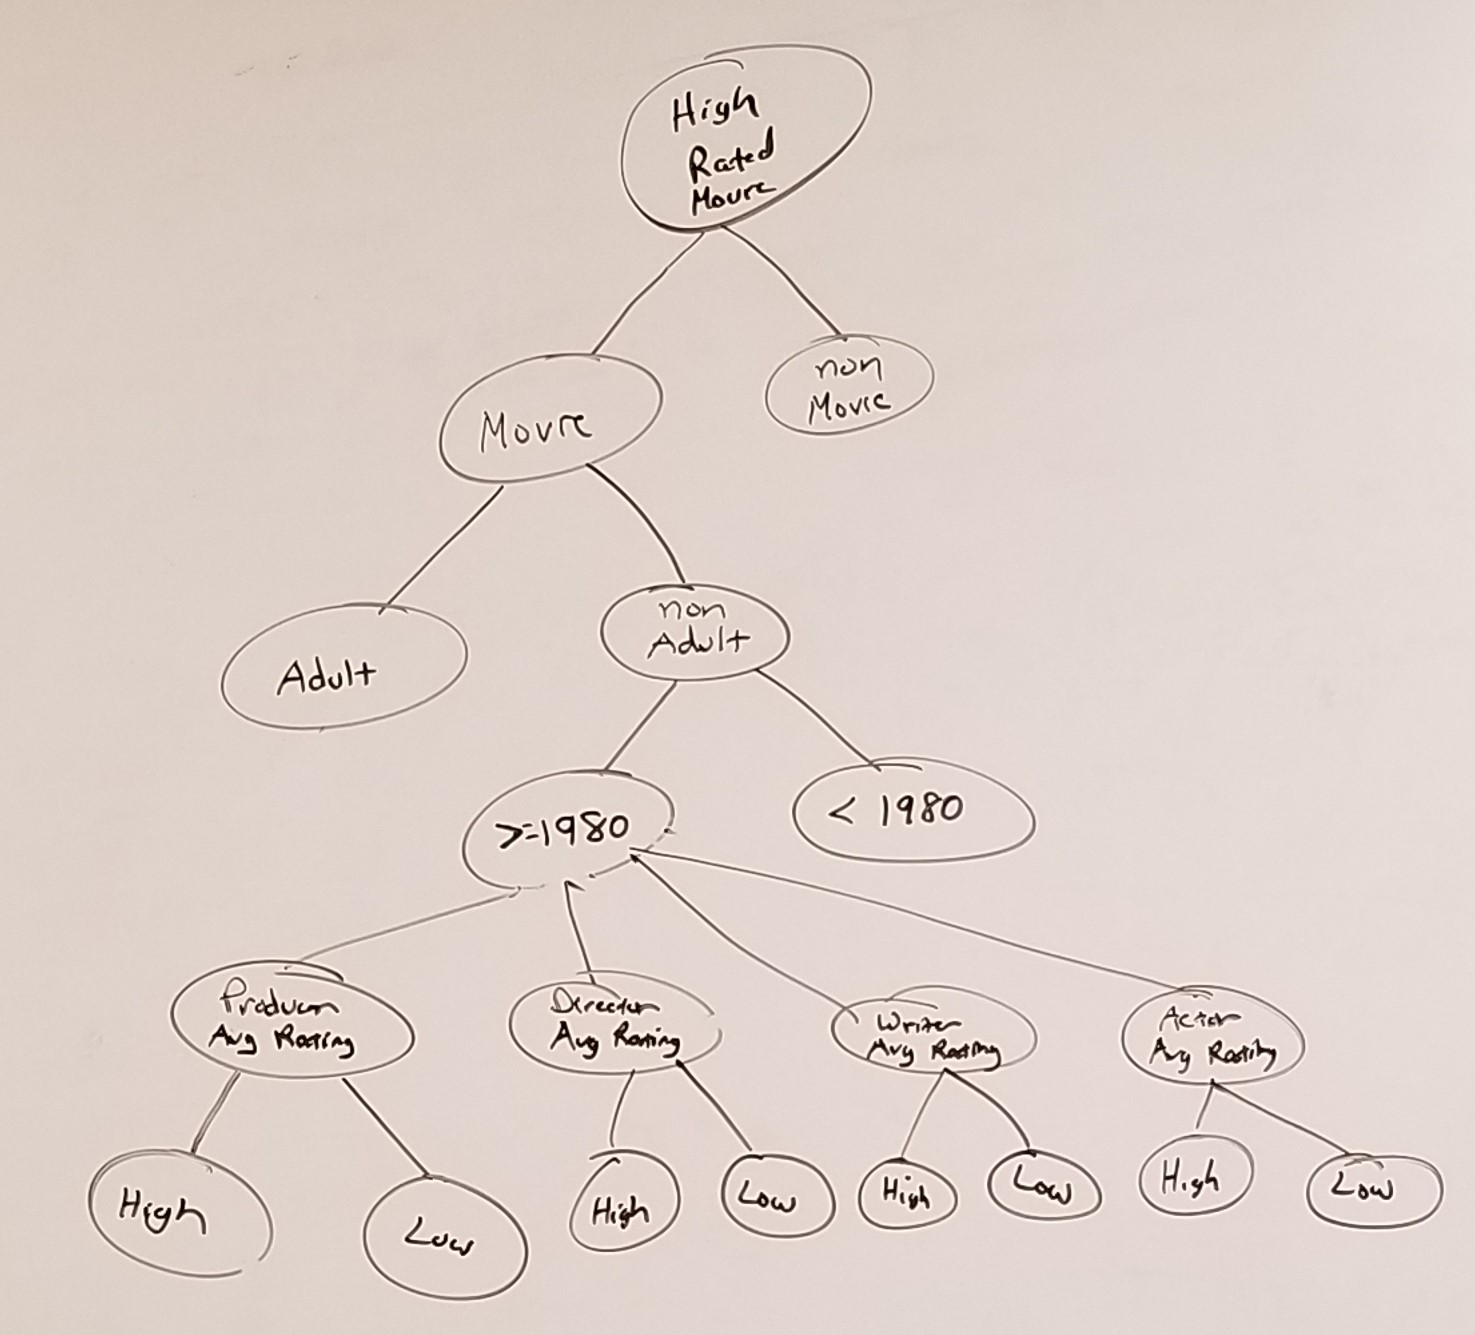 High
Rated
Movie
non
Movie
Movie
non
Adult
Adult
>=1980
< 1980
Producer
Avg Rating
Director
Avg Rating
Writer
Avg Rating
Actor
Avg Rating
High
Low
High
Low
High
Low
High
Low